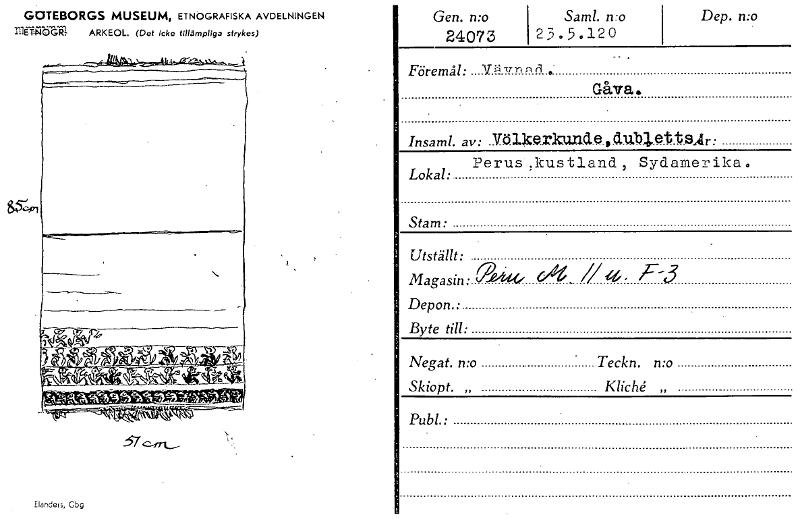 GÖTEBORGS MUSEUM, ETNOGRAFISKA AVDELNINGEN
ETNOGR. ARKEOL. (Det icke tillämpliga strykes)
85cm
51cm
Elanders, Gbg
Gen. n:o Saml. n:o Dep. n:o
24073 23.5.120
Föremål: Vävnad.
Gåva.
Insaml. av: Völkerkunde,dubletts År:
Lokal: Perus kustland, Sydamerika.
Stam:
Utställt:
Magasin: Peru M. 11 u. F-3
Depon.:
Byte till:
Negat. n:o Teckn. n:o
Skiopt. „ Kliché „
Publ.: